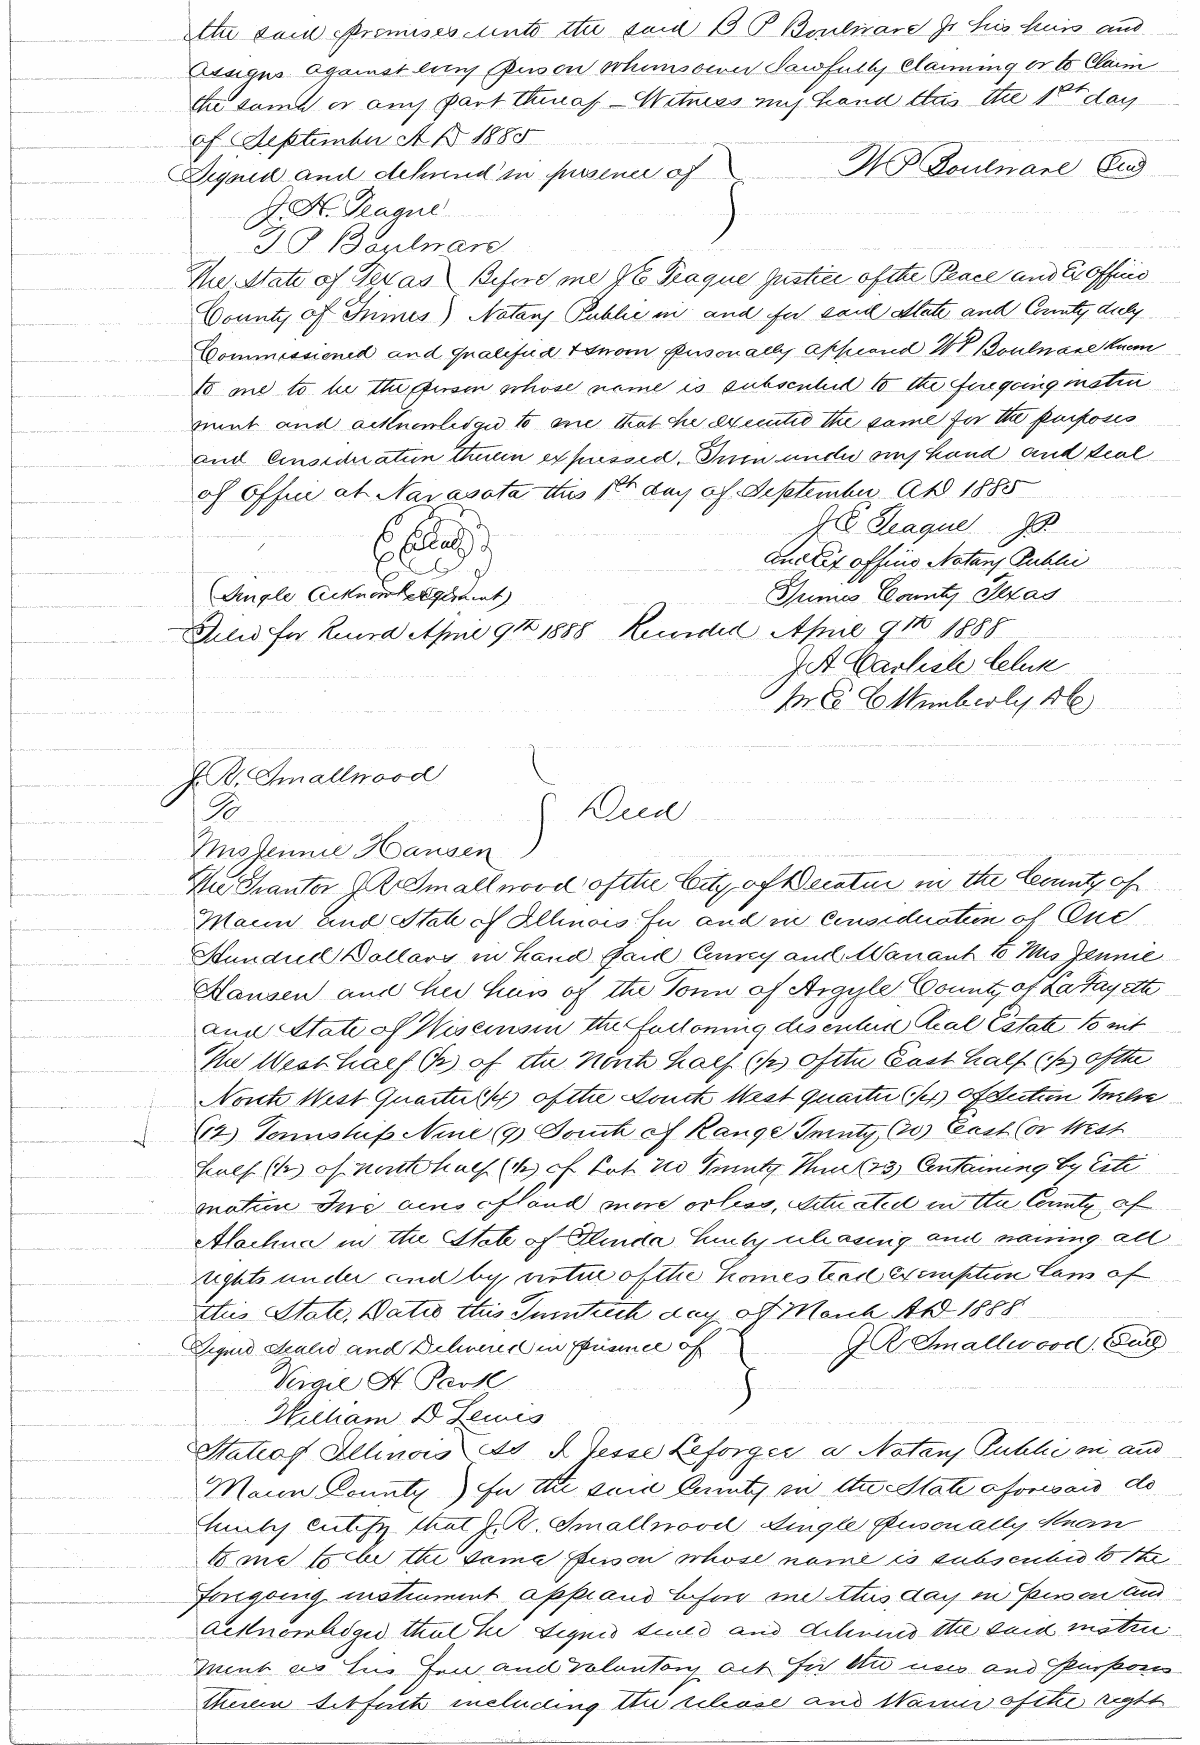 the said premises unto the said B P Boulware Jr his heirs and
assigns against every person whomsoever lawfully claiming or to Claim
the same or any part thereof – Witness my hand this the 1st day
of September A D 1885
Signed and delivered in presence of W P Boulware Seal
J. H. Teague
T P Boulware
The State of Texas ) Before me J E Teague Justice of the Peace and Ex Officio
County of Grimes ) Notary Public in and for said State and County duly
Commissioned and qualified & sworn personally appeared W P Boulware Known
to me to be the person whose name is subscribed to the foregoing instru
ment and acknowledged to me that he executed the same for the purposes
and Consideration therein expressed. Given under my hand and seal
of Office at Navasota this 1st day of September AD 1885
J E Teague JP
Seal
and Ex officio Notary Public
(Single Acknowledgement) Grimes County Texas
Filed for Record April 9th 1888 Recorded April 9th 1888
J A Carlisle Clerk
Wimberly DC
J. R. Smallwood
To } Deed
Mrs Jennie Hansen
The Grantor J R Smallwood of the City of Decatur in the County of
Macon and State of Illinois for and in Consideration of One
Hundred Dollars in hand paid Convey and Warrant to Mrs Jennie
Hansen and her heirs of the Town of Argyle County of La Fayette
and State of Wisconsin the following described Real Estate to wit
The West half (1/2) of the North half (1/2) of the East half (1/2) of the
North West Quarter (1/4) of the South West quarter (1/4) of Section Twelve
(12) Township Nine (9) South of Range Twenty (20) East (or West
half (1/2) of north half (1/2) of Lot No Twenty Three (23) Containing by Esti
mation Five acres of land more or less, situated in the County of
Alachua in the State of Florida hereby releasing and waiving all
rights under and by virtue of the homestead exemption laws of
this State. Dated this Twentieth day of March AD 1888
Signed Sealed and Delivered in presence of J R Smallwood. Seal
Vergie H Park
William D Lewis
State of Illinois ) SS I Jesse Leforgee a Notary Public in and
Macon County ) for the said County in the State aforesaid do
hereby certify that J. R. Smallwood Single personally known
to me to be the same person whose name is subscribed to the
foregoing instrument appeared before me this day in person and
acknowledged that he signed sealed and delivered the said instru
ment as his free and voluntary act for the uses and purposes
therein set forth including the release and Waiver of the right